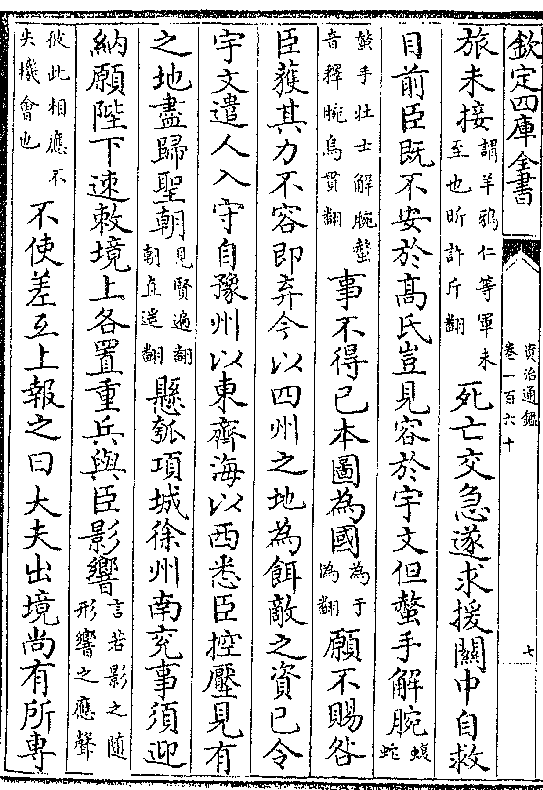 欽定四庫全書
資治通鑑
卷一百六十
七
旅未接謂羊鴉仁等軍未至也昕許斤翻死亡交急遂求援關中自救
目前臣既不安於髙氏豈見容於宇文但螫手解腕蝮蛇
螫手壮士解腕螫音釋腕烏貫翻事不得已本圖為國為于偽翻願不賜咎
臣蒦其力不容即弃今以四州之地為餌敵之資已令
宇文遣人入守自豫州以東齊海以西悉臣控壓見有
之地盡歸聖朝見賢遍翻朝直遥翻懸瓠項城徐州南兖事須迎
納願陛下速敕境上各置重兵與臣影響言若影之随形響之應聲
彼此相應不失機會也不使差互上報之曰大夫出境尚有所專